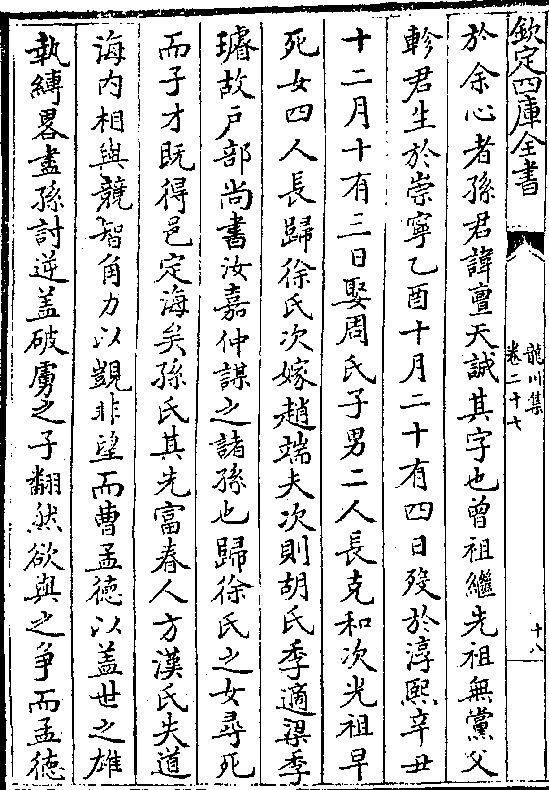 欽定四庫全書
龍川集
卷二十七
十八
於余心者孫君諱亶天誠其字也曾祖繼先祖無黨父
軫君生於崇寧乙酉十月二十有四日歿於淳熙辛丑
十二月十有三日娶周氏子男二人長克和次光祖早
死女四人長歸徐氏次嫁趙端夫次則胡氏季適梁季
璿故戶部尚書汝嘉仲謀之諸孫也歸徐氏之女尋死
而子才既得邑定海矣孫氏其先富春人方漢氏失道
海內相與競智角力以覬非望而曹孟德以蓋世之雄
執縛畧盡孫討逆盖破虜之子翻然欲與之爭而孟德